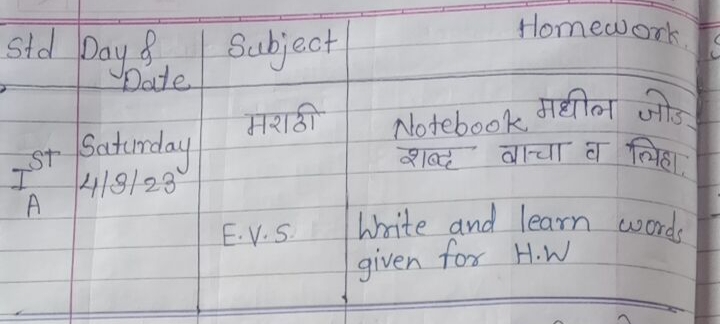 Std Day & Date Subject Homework.
Ist A Saturday 4/3/23 मराठी Notebook मधील जोड-
शब्द वाचा व लिहा.
E.V.S. Write and learn words
given for H.W